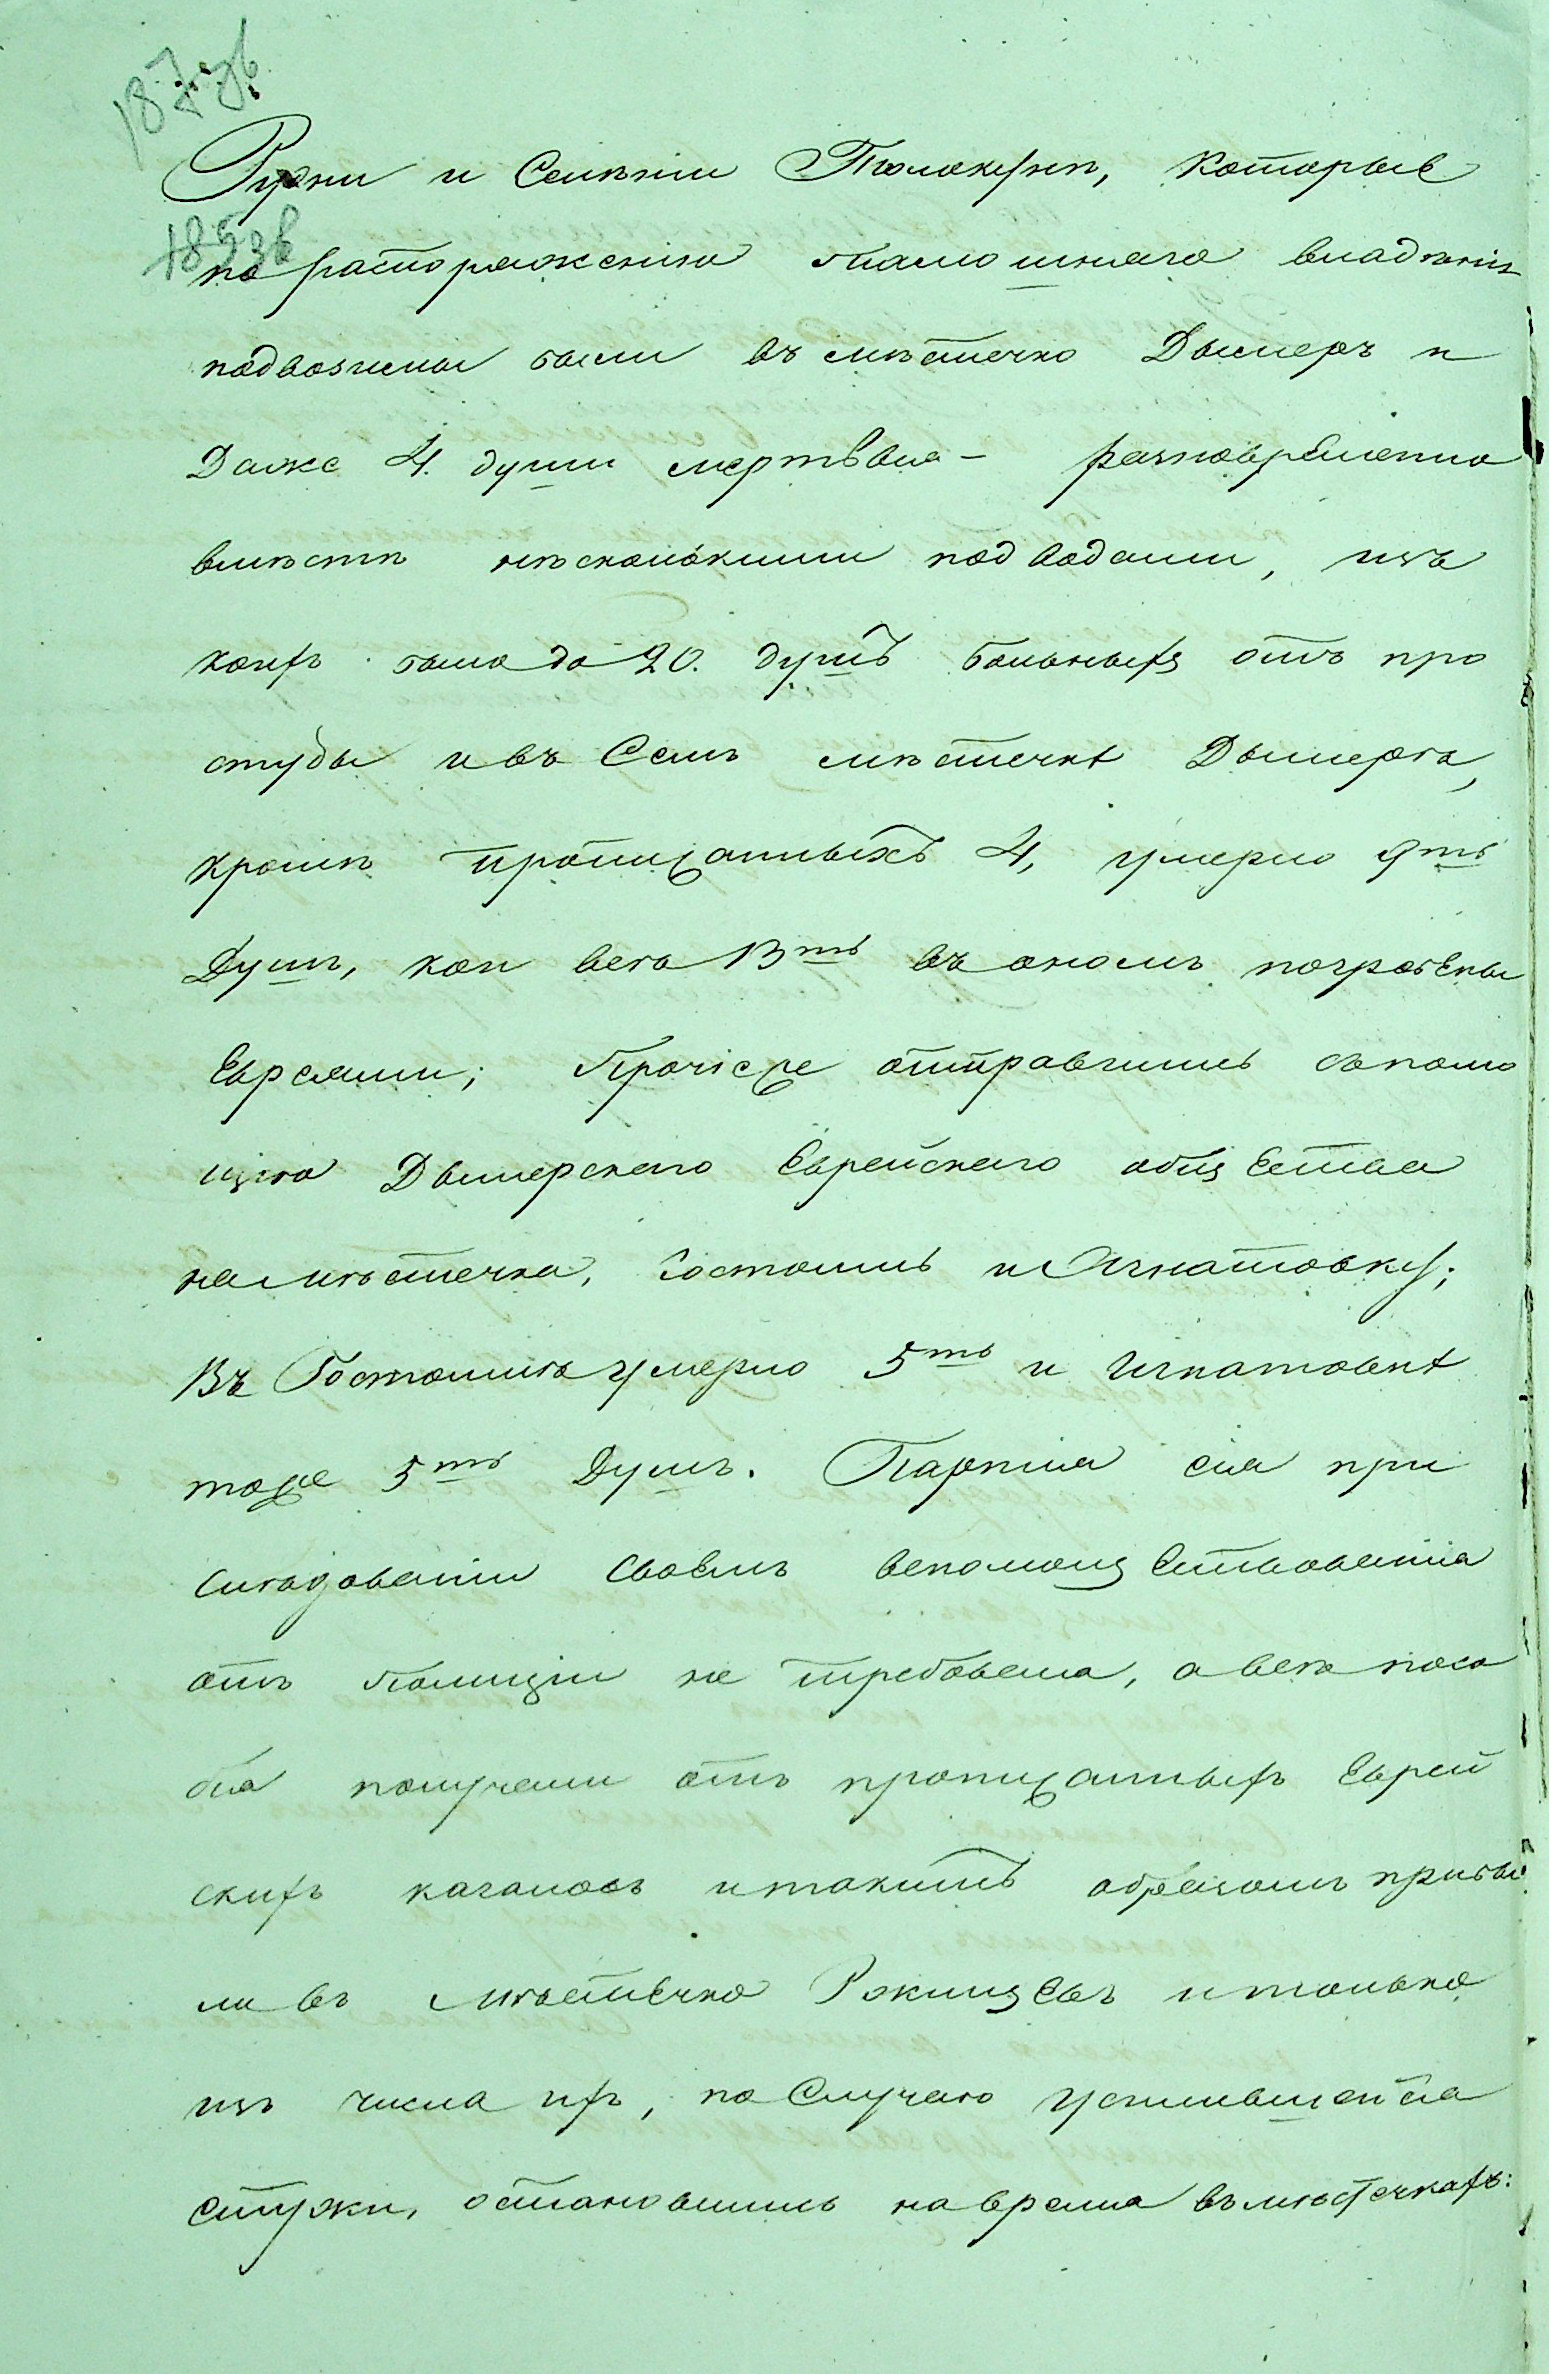 187 зв
Рудни и Селѣніи Толокунь, которые
185 зв
по распоряженію тамошняго владѣнія
подвозимы были въ мѣстечко Дымеръ и
Даже 4. души мертвыя – разновременно
вмѣстѣ нѣсколькими подводами, изъ
коихъ было до 20. душъ больныхъ отъ про
студы и въ Семъ мѣстечкѣ Дымерѣ,
кромѣ прописанныхъ 4, умерло 9ть
Душъ, кои всѣ 13ть въ ономъ погребены
Евреями; Прочіе же отправились съ помо
щію Дымерскаго Еврейскаго общества
на мѣстечка, Гостомль и Игнатовку;
Въ Гостомлѣ умерло 5ть и Игнатовкѣ
тоже 5ть Душъ. Партія сія при
Слѣдованіи Своемъ вспомоществованія
отъ полиціи не требовала, а всѣ посо
бія получали отъ прописанныхъ Еврей
скихъ кагаловъ и такимъ образомъ прибы
ли въ мѣстечко Ржищевъ и только
изъ числа ихъ, по Случаю усилившейся
Стужи, остановились на время въ мѣстечкахъ: